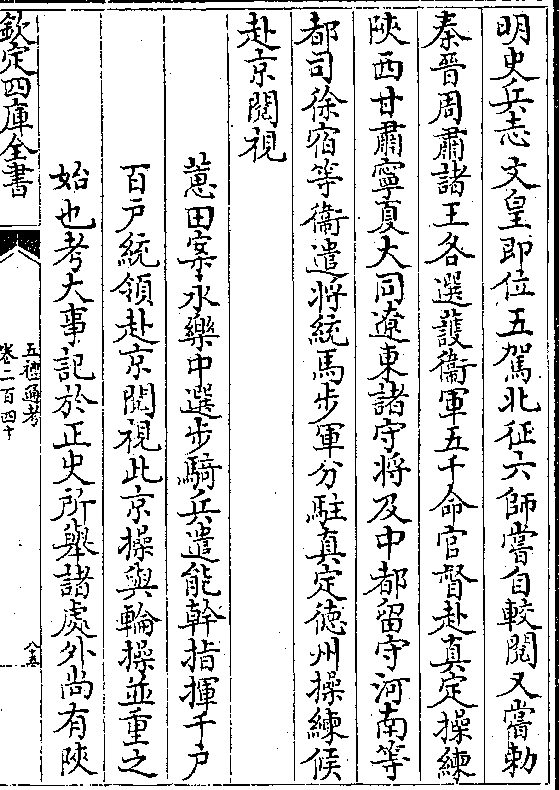 明史兵志文皇即位五駕北征六師嘗自較閱又嘗勅
秦晉周肅諸王各選護衞軍五千命官督赴真定操練
陜西甘肅寧夏大同遼東諸守將及中都留守河南等
都司徐宿等衞遣將統馬步軍分駐真定德州操練候
赴京閱視
蕙田案永樂中選步騎兵遣能幹指揮千戶
百戶統領赴京閱視此京操與輪操並重之
始也考大事記於正史所舉諸處外尚有陜
欽定四庫全書
五禮通考
卷二百四十